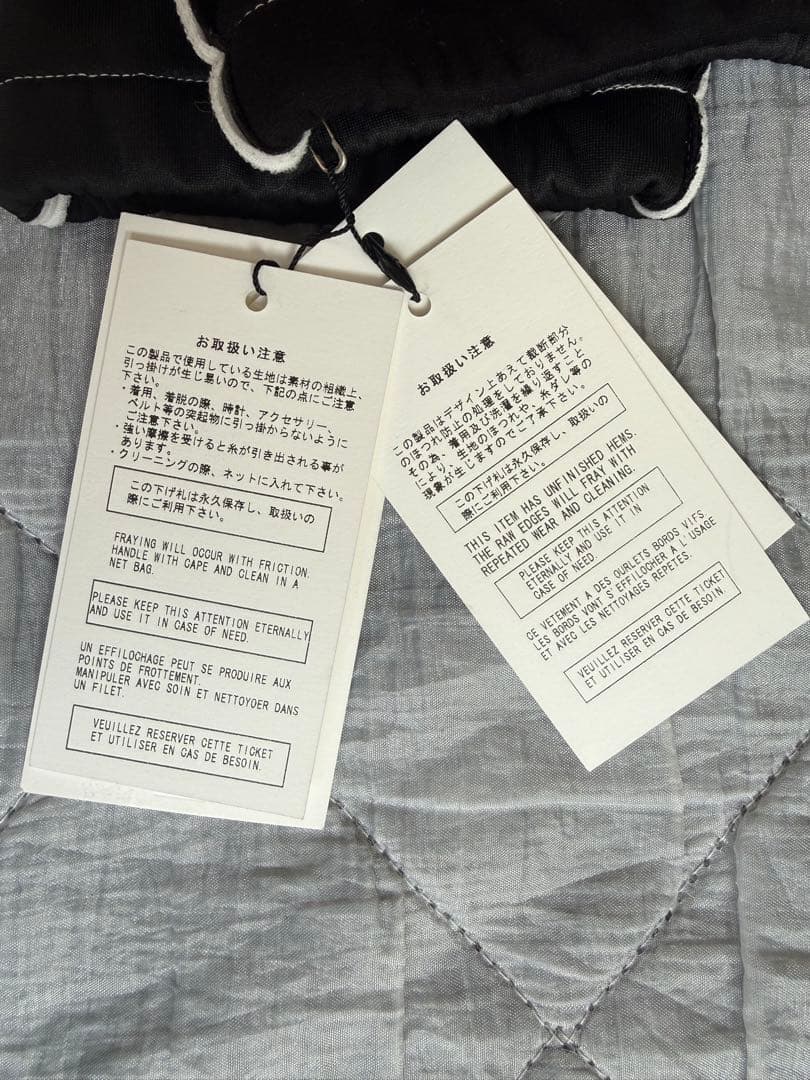 お取扱い注意
この製品で使用している生地は素材の組織上、
引っ掛けが生じ易いので、下記の点にご注意
下さい。
・着用、着脱の際、時計、アクセサリー、
ベルト等の突起物に引っ掛からないように
ご注意下さい。
・強い摩擦を受けると糸が引き出される事が
あります。
・クリーニングの際、ネットに入れて下さい。
この下げ札は永久保存し、取扱いの
際にご利用下さい。
FRAYING WILL OCCUR WITH FRICTION.
HANDLE WITH CAPE AND CLEAN IN A
NET BAG.
PLEASE KEEP THIS ATTENTION ETERNALLY
AND USE IT IN CASE OF NEED.
UN EFFILOCHAGE PEUT SE PRODUIRE AUX
POINTS DE FROTTEMENT.
MANIPULER AVEC SOIN ET NETTOYOER DANS
UN FILET.
VEUILLEZ RESERVER CETTE TICKET
ET UTILISER EN CAS DE BESOIN.
お取扱い注意
この製品はデザイン上あえて裁断部分
のほつれ防止の処理をしておりません。
その為、着用及び洗濯を繰り返すこと
により、生地のほつれや、糸ダレ等の
現象が生じますのでご了承下さい。
この下げ札は永久保存し、取扱いの
際にご利用下さい。
THIS ITEM HAS UNFINISHED HEMS.
THE RAW EDGES WILL FRAY WITH
REPEATED WEAR AND CLEANING.
PLEASE KEEP THIS ATTENTION
ETERNALLY AND USE IT IN
CASE OF NEED.
CE VETEMENT A DES OURLETS BORDS VIFS.
LES BORDS VONT S'EFFILOCHER A L'USAGE
ET AVEC LES NETTOYAGES REPETES.
VEUILLEZ RESERVER CETTE TICKET
ET UTILISER EN CAS DE BESOIN.